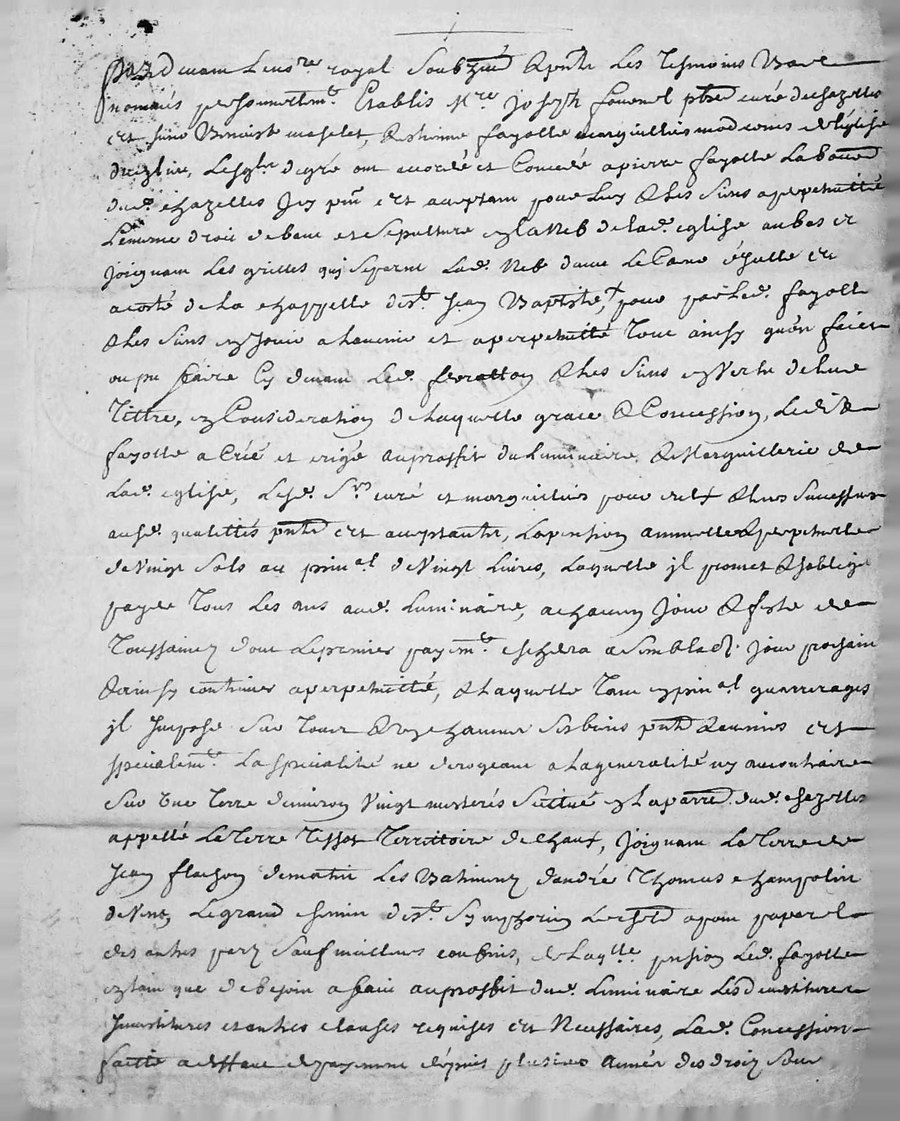 Pardevant Le no.re royal Soubzné & pnts Les Tesmoins Bas
nommés personnelem.t Establis M.re Joseph fournel ptre curé de chazelles
et sieur Benoist maselet, & Estienne fayolle marguilliers modernes de l'église
dud lieu, Lesq.ls de gré ont accordé et Concedé a pierre fayolle
dud. chazelles Icy pnt et acceptant pour Luy & les siens a perpetuitté
Le mesme droit de banc et sepulture en la Nef de lad. eglise au bas et
Joignant Les grilles quj separent Lad. Nef d'avec Le
a costé de la chappelle de s.t Jean Baptiste, pour par Led. fayolle
& les siens en Jouir a l'avenir et a perpetuitté Tout ainsy qu'en
ou pu faire Cy devant Led. & les siens en Vertu de leur
Tittre, en Consideration de laquelle grace & Concession, Ledit
fayolle a Créé et erigé au proffit du Luminaire & Marguillerie de
Lad. eglise, Lesd. S.rs curé et marguilliers pour eux & leurs Successeurs
ausd. qualittés pnts et acceptants, La pension annuelle & perpetuelle
de Vingt Sols au prin.al de Vingt Livres, Laquelle jl promet & s'oblige
payer Tous Les ans aud. Luminaire, a chacun Jour & feste de
Toussainct dont Le premier payem.t eschera a semblable Jour prochain
& ainsy continuer a perpetuitté, & laquelle Tant en prin.al qu'arrerages
jl Impose Sur Tous & ungs chacuns ses biens pnts & advenirs et
specialem.t La specialité ne derogeant a La generalité ny au contraire
Sur Une Terre d'environ Vingt mesterés Scittué en La parr. dud. chazelles
appellé La Terre Tissot Territtoire de chaux, Joignant La Terre de
Jean flachon de matin Les Batiments d'andré Thomas champolin
de Vent, Le grand chemin de s.t Symphorien Lechatel
des autres parts Sauf meilleurs confins, de Laq.lle pension Led. fayolle
en tant que de besoin a faict au proffit dud. Luminaire Les devestitures
Jnvestitures et autres clauses requises et Necessaires, Lad. Concession
faitte a deffaut de payement depuis plusieurs années des droits